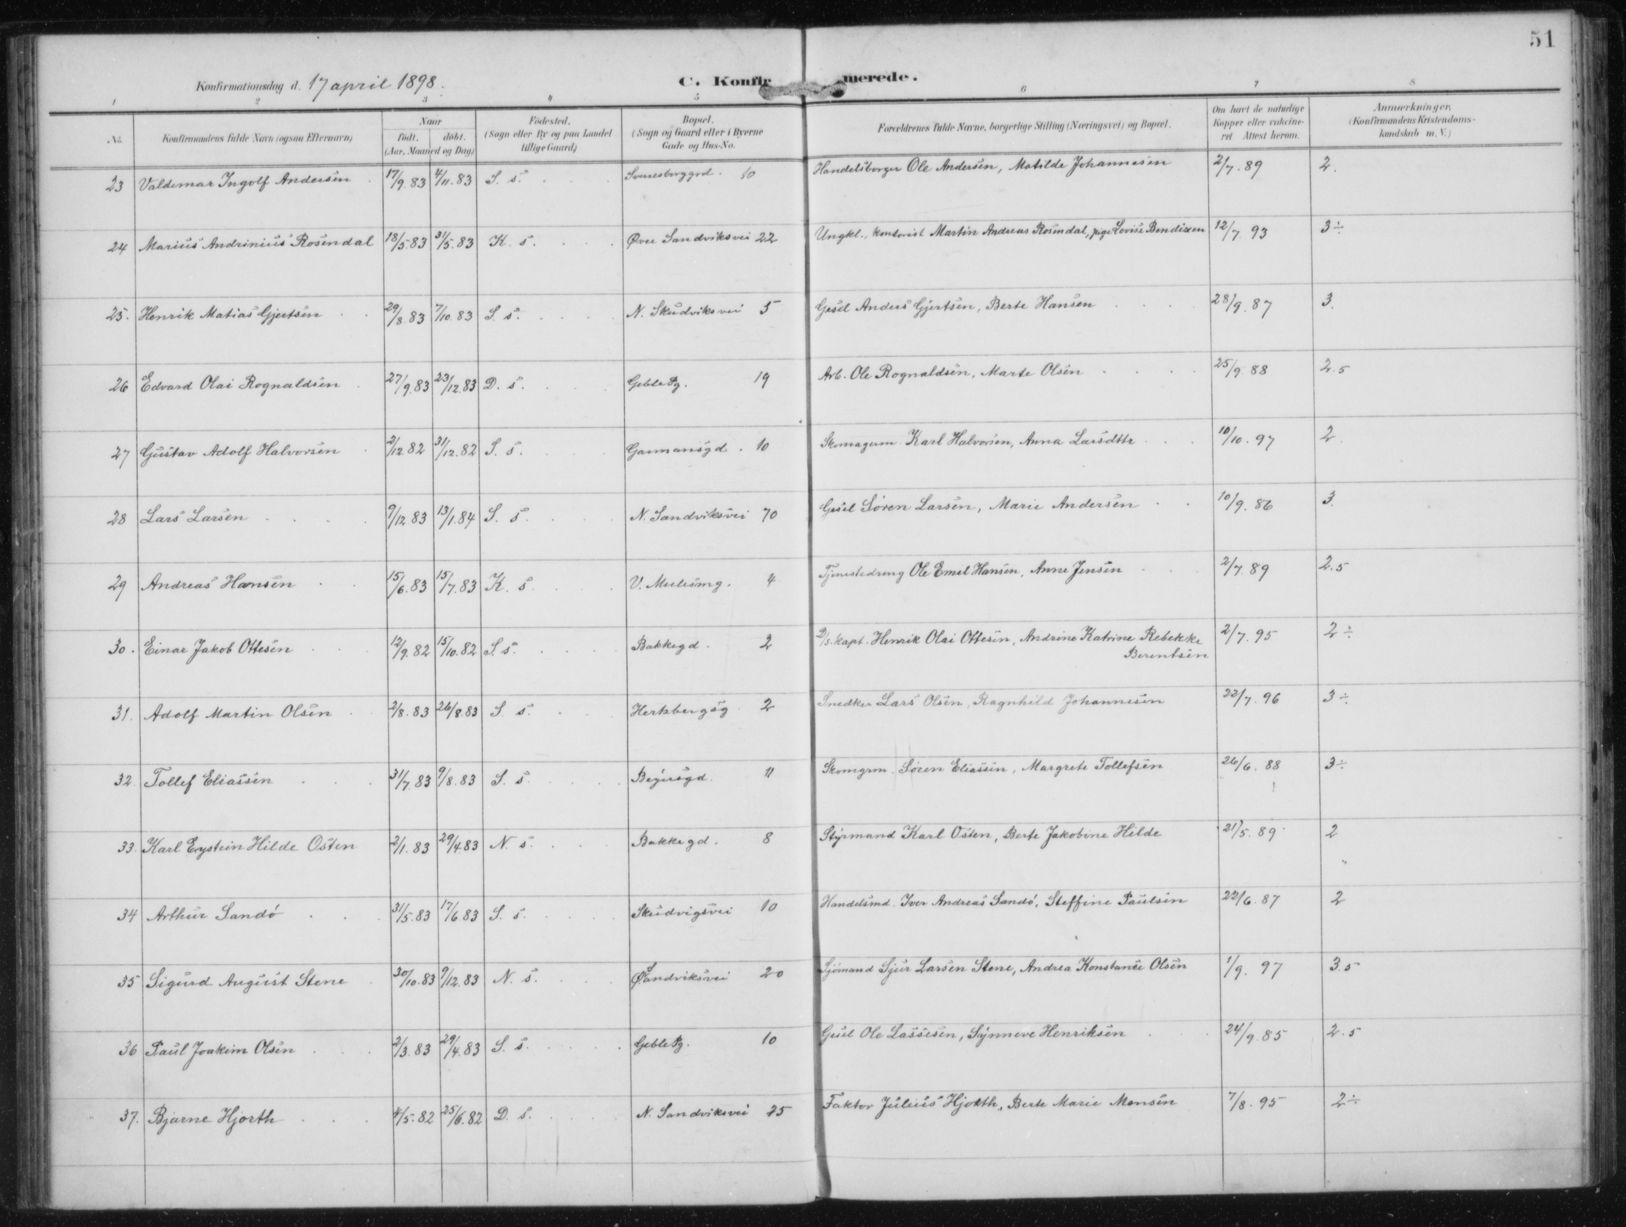 51
Konfirmationsdag d. 17 april 1898.
C. Konfirmerede.
1 2 3 4 5 6 7 8
No. Konfirmandens fulde Navn (ogsaa Efternavn) Naar født. døbt. (Aar, Maaned og Dag) Fødested. (Sogn eller By og paa Landet tillige Gaard) Bopæl. (Sogn og Gaard eller i Byerne Gade og Hus-No. Forældrenes fulde Navne, borgerlige Stilling (Næringsvei) og Bopæl. Om havt de naturlige Kopper eller vaccineret Attest herom. Anmærkninger. (Konfirmandens Kristendomskundskab m. V.)
23 Valdemar Ingolf Andersen 17/9.83 4/11.83 S. s. Sverresborggrd. 10 Handelsborger Ole Andersen, Matilde Johannesen 2/7.89 2.
24 Marius Andrinius Rosendal 18/5.83 31/5.83 K. s. Øvre Sandviksvei 22 Ungkl., kontorist Martin Andreas Rosendal, pige Lovise Bendixen 12/7.93 3÷
25. Henrik Matias Gjertsen 29/8.83 7/10.83 S. s. N. Skudviksvei 5 Gesel Anders Gjertsen, Berte Hansen 28/9.87 3.
26 Edvard Olai Rognaldsen 27/9.83 23/12.83 D. s. Geble Pg. 19 Arb. Ole Rognaldsen, Marte Olsen 25/9.88 2.5
27 Gustav Adolf Halvorsen 2/12.82 31/12.82 S. s. Garmansgd. 10 Skomagerm. Karl Halvorsen, Anna Larsdttr 10/10.97 2.
28 Lars Larsen 9/12.83 13/1.84 S. s. N. Sandviksvei 70 Gesel Søren Larsen, Marie Andersen 10/9.86 3.
29 Andreas Hansen 15/6.83 15/7.83 K. s. 4 Tjenestedreng Ole Emil Hansen, Anne Jensen 2/7.89 2.5
30. Einar Jakob Ottesen 12/9.82 15/10.82 S. s. Bakkegd. 2 D/s.kapt. Henrik Olai Ottesen, Andrine Katrine Rebekke Berentsen 2/7.95 2÷
31. Adolf Martin Olsen 2/8.83 26/8.83 S. s. Hertzbergsg 2 Snedker Lars Olsen, Ragnhild Johannesen 22/7.96 3÷
32. Tollef Eliassen 31/7.83 9/8.83 S. s. 11 Skomgrm. Søren Eliassen, Margrete Tollefsen 26/6.88 3÷
33. Karl Eystein Hilde Osten 2/1.83 29/4.83 N. s. Bakkegd. 8 Styrmand Karl Osten, Berte Jakobine Hilde 21/5.89 2
34 Arthur Sandø 31/5.83 17/6.83 S. s. Skudvigsvei 10 Handelsmd. Iver Andreas Sandø, Steffine Paulsen 22/6.87 2
35 Sigurd August Stene 30/10.83 9/12.83 N. s. Ø Sandviksvei 20 Sjømand Sjur Larsen Stene, Andrea Konstanse Olsen 1/9.97 3.5
36 Paul Joakim Olsen 2/3.83 29/4.83 S. s. Geble Pg. 10 Gesel Ole Lassesen, Synneve Henriksen 24/9.85 2.5
37. Bjarne Hjorth 4/5.82 25/6.82 D. s. N. Sandviksvei 25 Faktor Julius Hjorth, Berte Marie Monsen 7/8.95 2÷